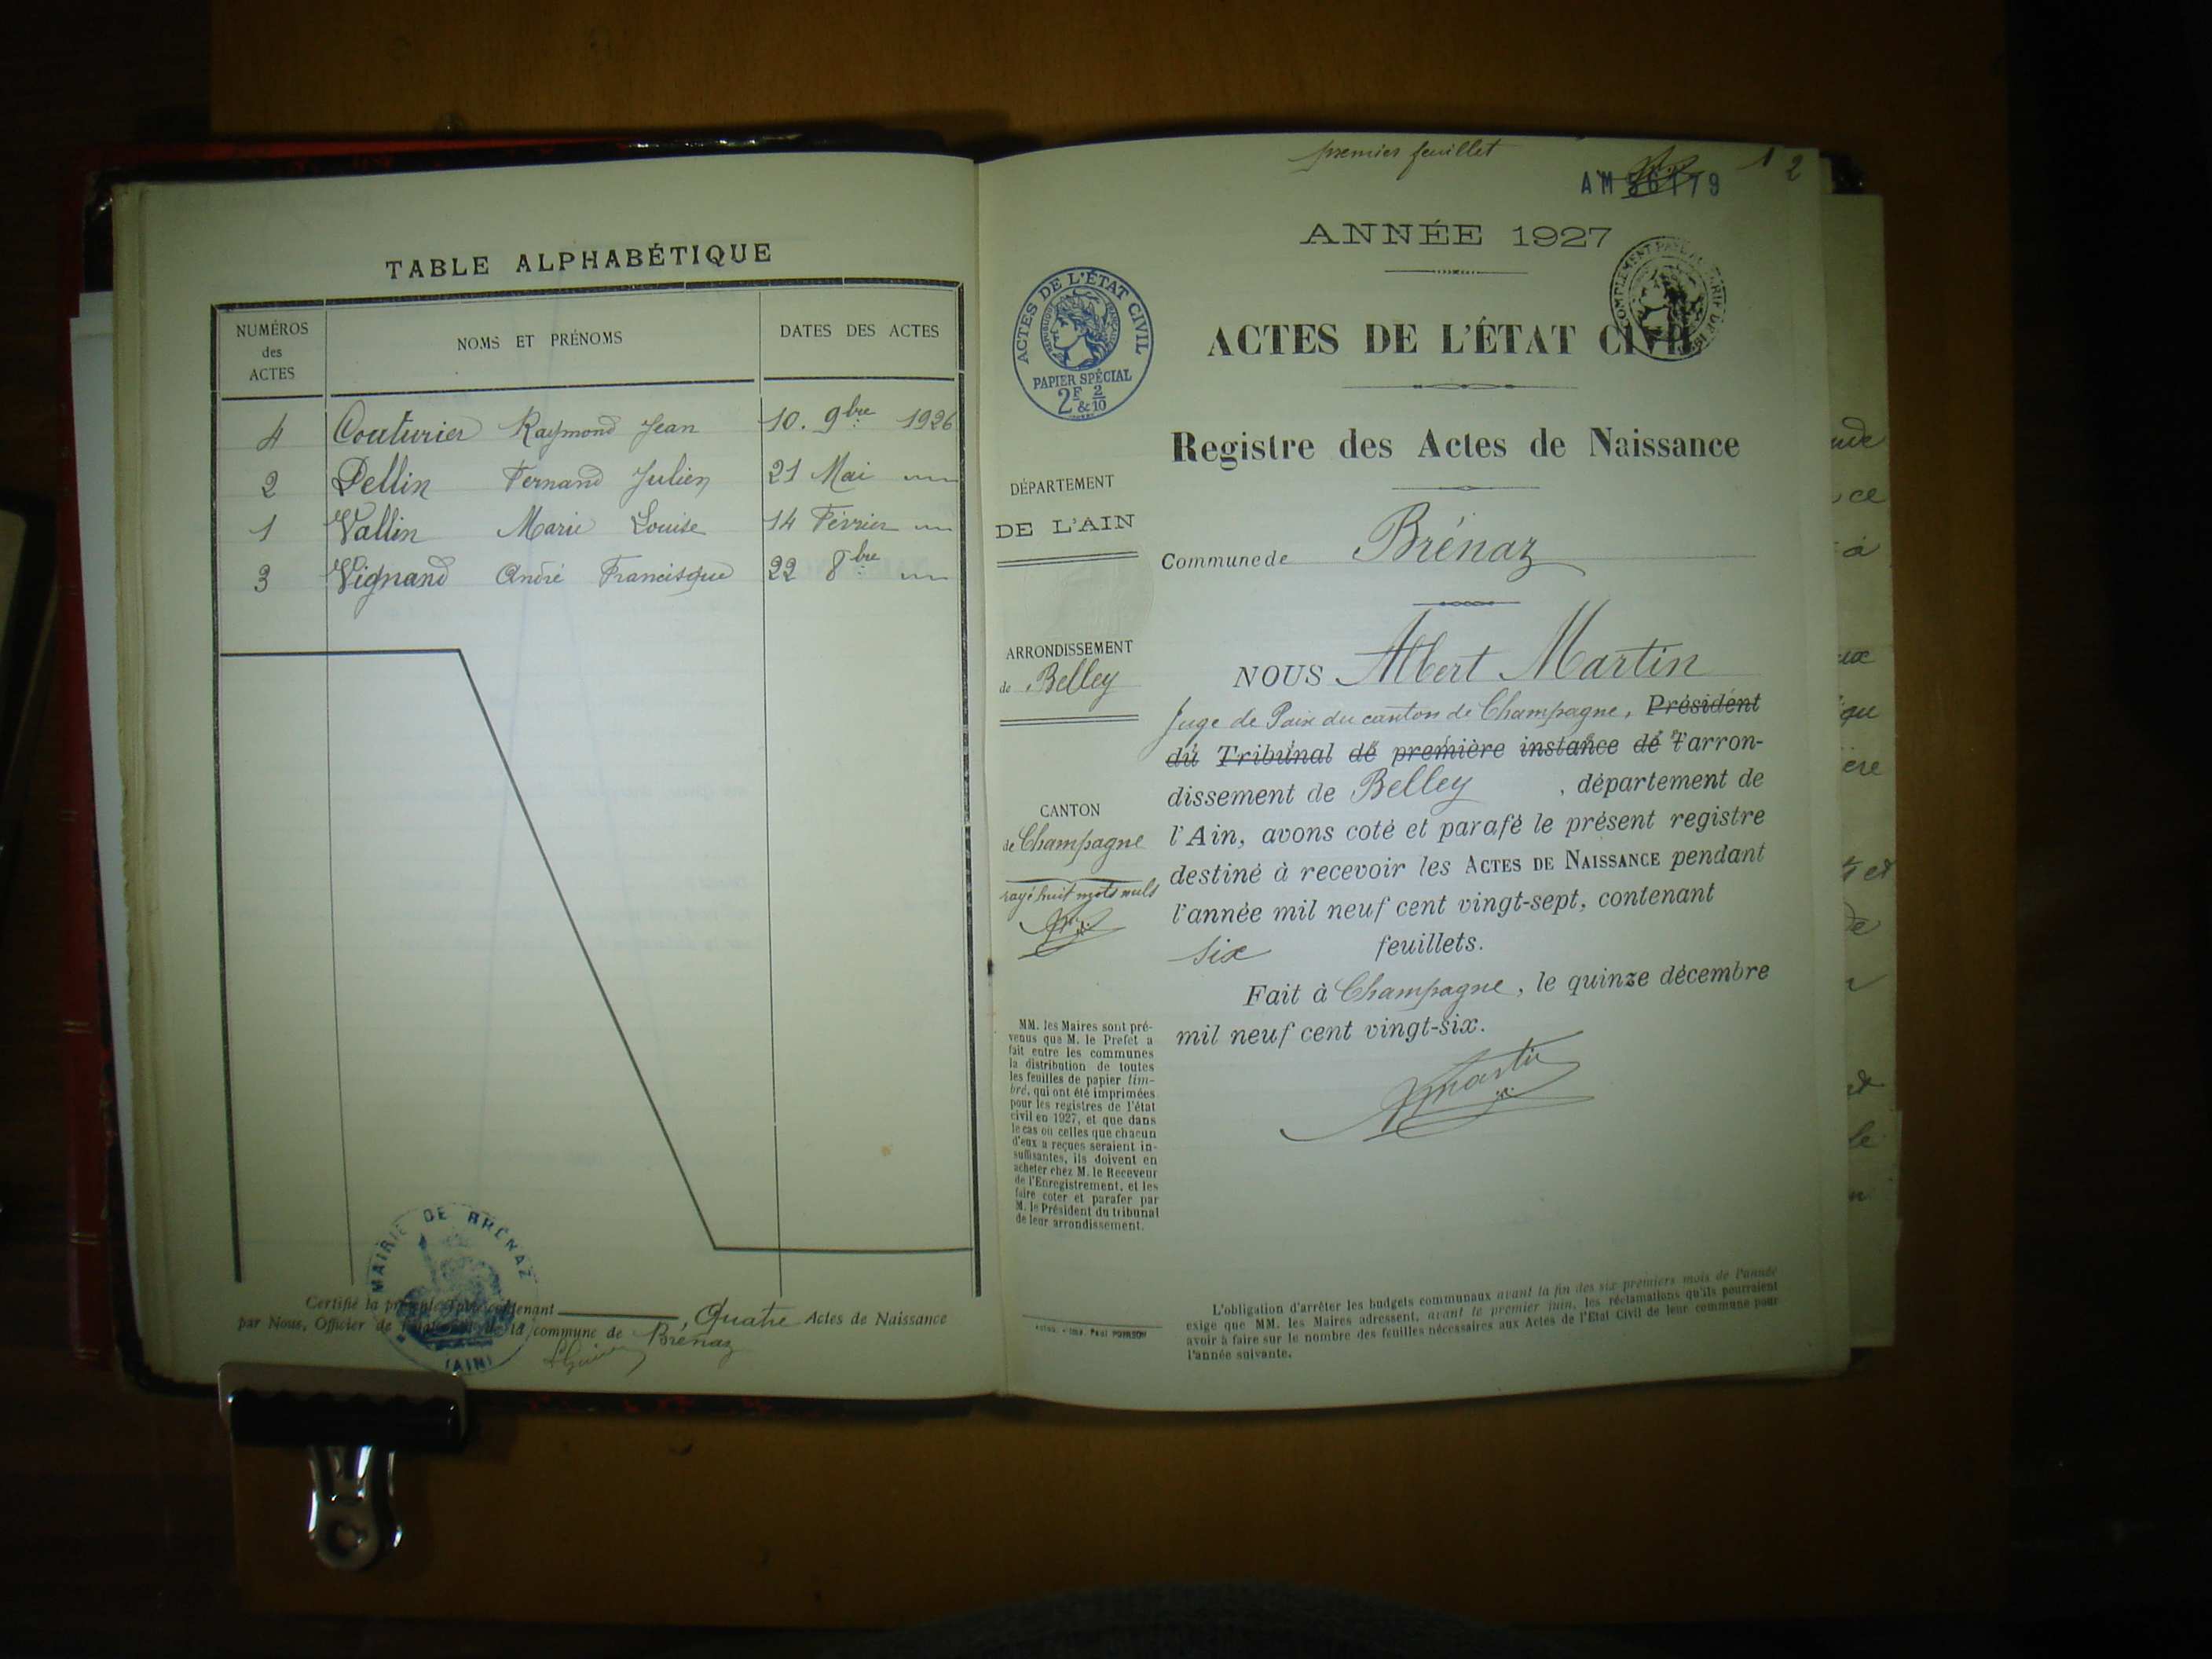 TABLE ALPHABÉTIQUE
NUMÉROS
des
ACTES
NOMS ET PRÉNOMS
DATES DES ACTES
4 Couturier Raymond Jean 10. 9bre 1926
2 Pellin Fernand Julien 21 Mai
1 Vallin Marie Louise 14 Février
3 Vignand André Francisque 22 8bre
MAIRIE DE BRÉNAZ
(AIN)
Certifié la présente table contenant Quatre Actes de Naissance
par Nous, Officier de de la commune de Brénaz
premier feuillet
AM 56179
1 2
ANNÉE 1927
ACTES DE L'ÉTAT CIVIL
RÉPUBLIQUE FRANÇAISE
PAPIER SPÉCIAL
2F & 2/10
COMPLÉMENT
ACTES DE L'ÉTAT CIVIL
Registre des Actes de Naissance
DÉPARTEMENT
DE L'AIN
Commune de Brénaz
ARRONDISSEMENT
de Belley
CANTON
de Champagne
rayé huit mots nuls
NOUS Albert Martin
Juge de Paix du canton de Champagne, Président
du Tribunal de première instance de l'arron-
dissement de Belley, département de
l'Ain, avons coté et parafé le présent registre
destiné à recevoir les ACTES DE NAISSANCE pendant
l'année mil neuf cent vingt-sept, contenant
six feuillets.
Fait à Champagne, le quinze décembre
mil neuf cent vingt-six.
AMartin
MM. les Maires sont pré-
venus que M. le Préfet a
fait entre les communes
la distribution de toutes
les feuilles de papier tim-
bré, qui ont été imprimées
pour les registres de l'état
civil en 1927, et que dans
le cas où celles que chacun
d'eux a reçues seraient in-
suffisantes, ils doivent en
acheter chez M. le Receveur
de l'Enregistrement, et les
faire coter et parafer par
M. le Président du tribunal
de leur arrondissement.
L'obligation d'arrêter les budgets communaux avant la fin des six premiers mois de l'année
exige que MM. les Maires adressent, avant le premier juin, les réclamations qu'ils pourraient
avoir à faire sur le nombre des feuilles nécessaires aux Actes de l'Etat Civil de leur commune pour
l'année suivante.